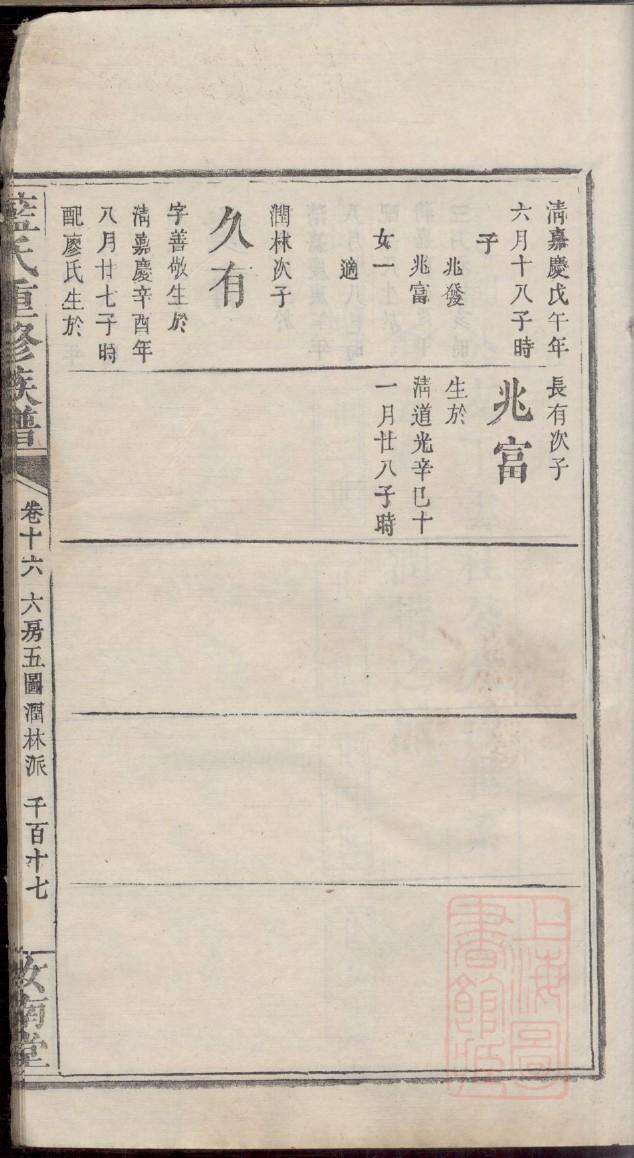 清嘉慶戊午年
六月十八子時
子
兆發
兆富
女一
適
潤林次子
久有
字善敬生於
清嘉慶辛酉年
八月廿七子時
配廖氏生於
長有次子
兆富
生於
清道光辛巳十
一月廿八子時
藍氏重修族譜
卷十六 六房五圖潤林派 千百十七
汝南堂
上海圖
書館藏